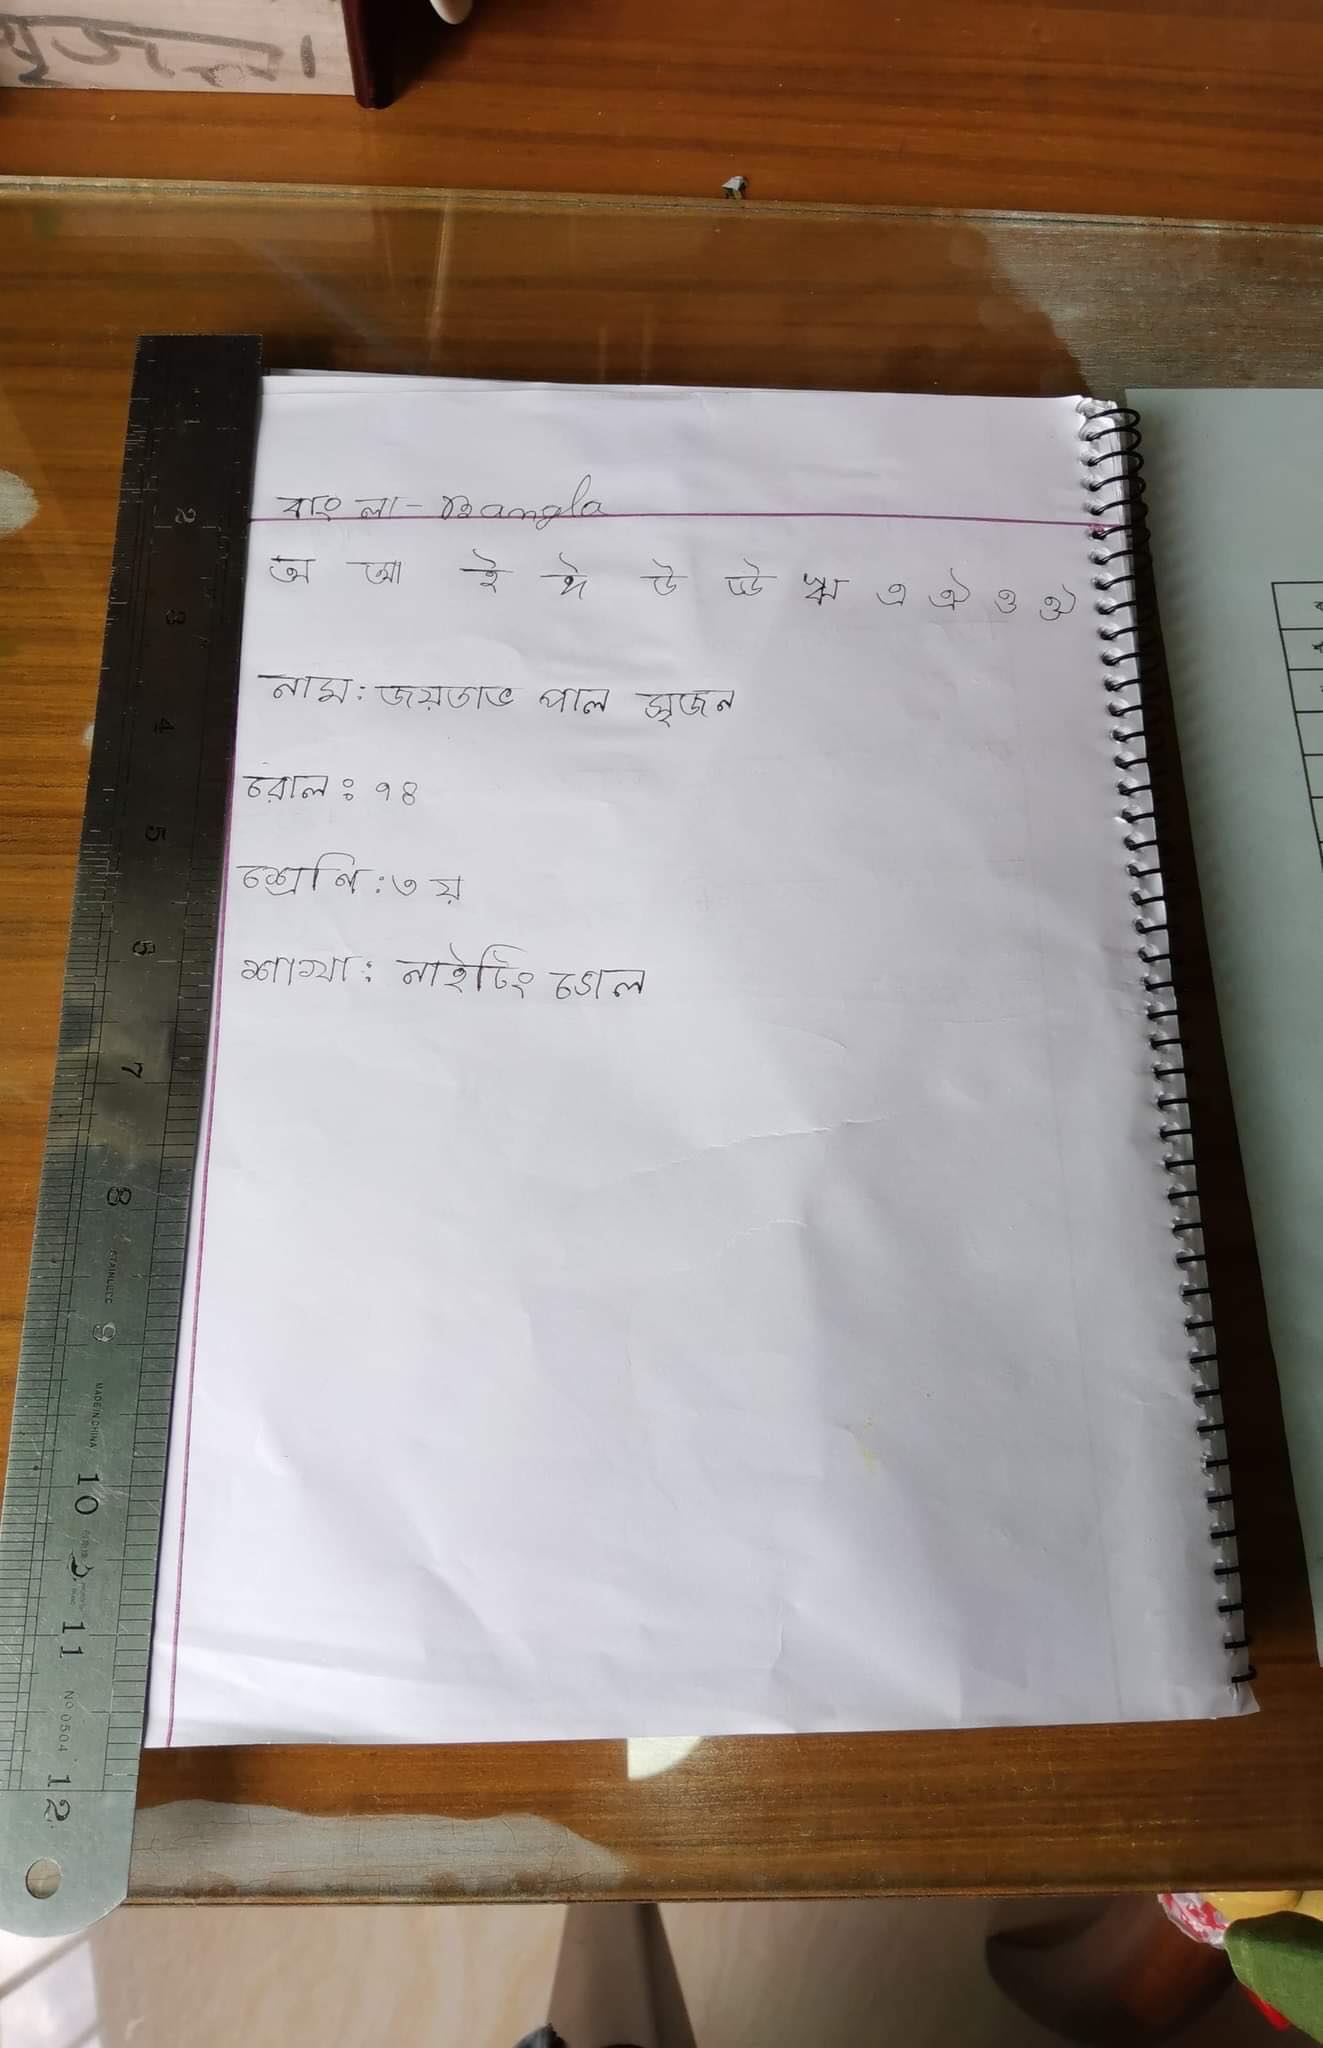 সৃজন।
বাংলা - Bangla
অ আ ই ঈ উ ঊ ঋ এ ঐ ও ঔ
নাম: জয়তাভ পাল সৃজন
রোল: ৭৪
শ্রেণি: ৩য়
শাখা: নাইটিংগেল
1
2
3
4
5
6
7
8
STAINLESS
9
MADE IN CHINA
10
11
NO 0504
12